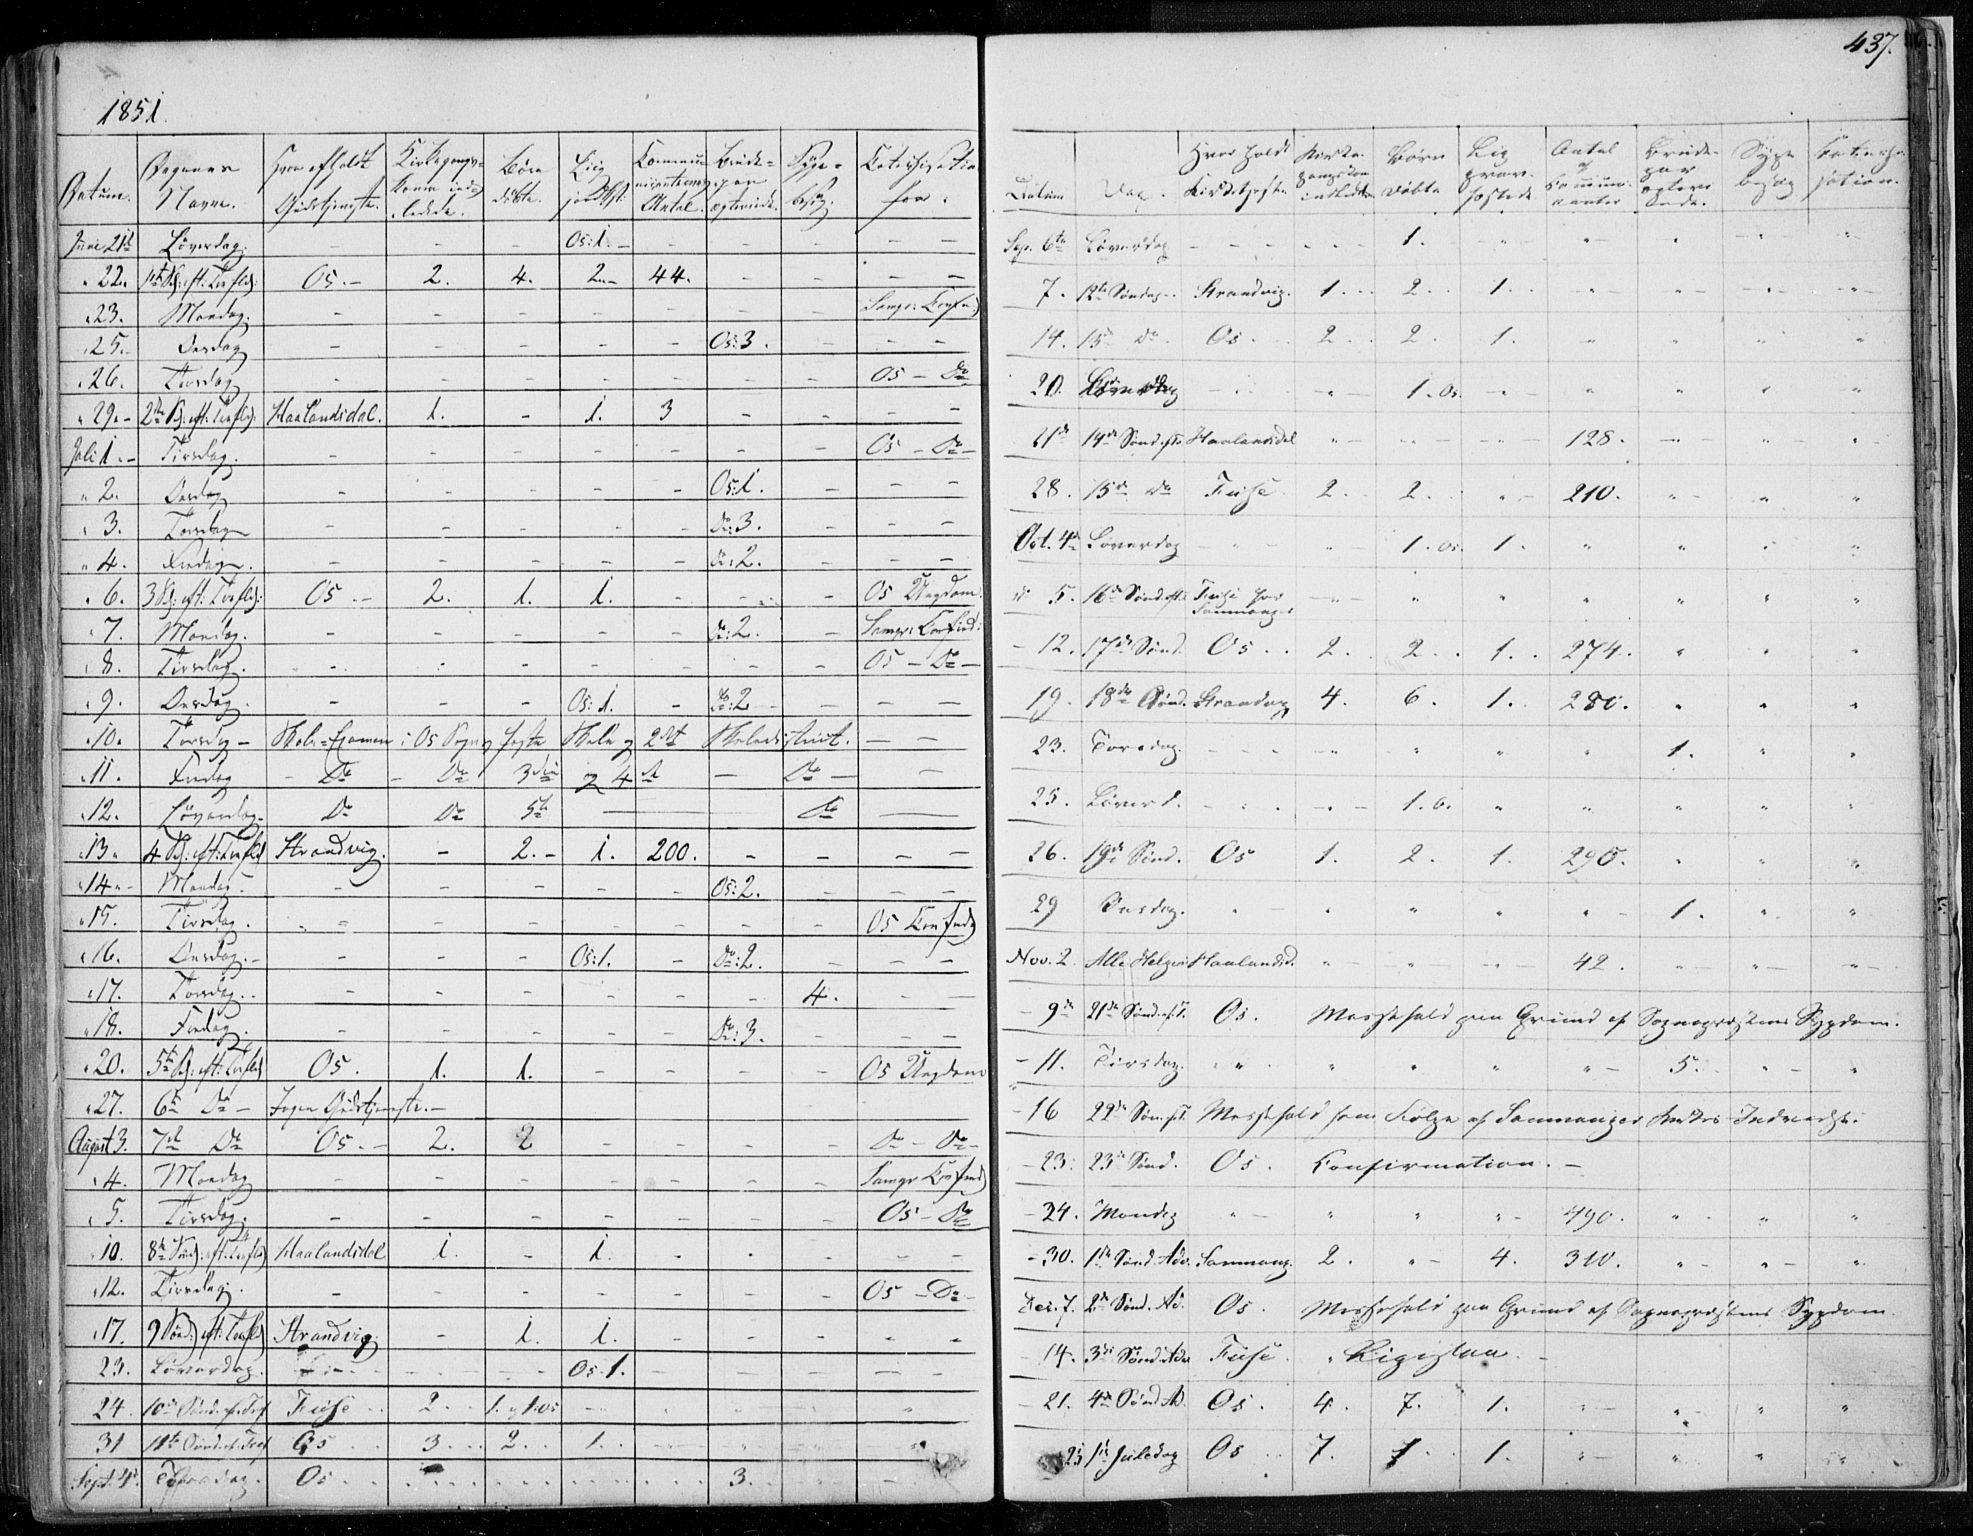 437.
1851.
Datum. Dagenes Navne. Hvor afholdt Gudstjeneste. Kirkegangs= Koner indledede. Børn døbte. Liig jordf: Antal. Brude= par Syge= besøg. Catechisation for.
Juni 21de Løverdag. - - - Os: 1. - - - - -
" 22. 1ste S: eft: Trefld: Os. - 2. 4. 2. 44. - - -
" 23. Mandag. - - - - - - - Samgr: Confird
" 25. Onsdag - - - - - Os: 3. - -
" 26. Torsdag - - - - - - - Os - Do
" 29. - 2den S: eft: Trefld: Haalandsdal. 1. - 1. 3 - - -
Juli 1. - Tirsdag. - - - - - - - Os - Do -
" 2. Onsdag - - - - - Os: 1. - -
" 3. Torsdag - - - - - Do: 3. - -
" 4. Fredag. - - - - - Do: 2. - -
" 6. 3 S: eft: Trefld: Os - 2. 1. 1. - - - Os Ungdom.
" 7. Mandag. - - - - - Do: 2. - Samgr: Confird:
" 8. Tirsdag. - - - - - - - Os - Do -
" 9. Onsdag. - - - Os: 1. - Do: 2 - -
" 10. Torsdag - Skole=Examen i Os Sogns første Skole og 2det Skoledistrict. - -
" 11. Fredag - Do - Do 3die og 4de - Do - -
" 12. Løverdag. Do Do 5te - - Do -
" 13. 4 S: eft: Trefld Strandvig. - 2. - 1. 200. - - -
" 14. - Mandag. - - - - - Os: 2. - -
" 15. Tirsdag. - - - - - - - Os Confird
" 16. Onsdag. - - - - Os: 1. - Do: 2. - -
" 17. Torsdag. - - - - - - 4. -
" 18. Fredag. - - - - - Do: 3. - -
" 20. 5te S: eft: Trefld Os. 1. 1. - - - - Os Ungdom
" 27. 6te Do - Ingen Gudstjeneste. -
August 3. 7de Do Os. - 2. 2 - - - - Do - Do -
" 4. Mandag - - - - - - - Samgr Confird
" 5. Tirsdag. - - - - - - - Os - Do
" 10. 8de Sønd: eft: Trefld Haalandsdal 1. - 1. - - - -
" 12. Tirsdag. - - - - - - - Os - Do -
" 17. 9 Sønd: eft: Trefld Strandvig. - 1. 1. - - - -
23. Løverdag. - - - Os: 1. - - - -
24. 10de Sønd. ef. Tref Fuse 2. 1. og 1. Os - - -
31 11te Sønd. ef. Tref Os 3. 2. 1. -
Sept. 4de Torsdag. Os 3.
Datum Dag. Hvor holdt Kirketjeneste Kirke- gangskon. indledte Børn døbte Lig Antal af Communi- canter Brude- par Syge besøg Catechi- sation.
Sep. 6te Løverdag - - - 1. " " " " "
7. 12te Søndag Strandvig. 1. 2. 1. " " " "
14. 13de Do. Os 2. 2. 1. " " " "
20. Løverdag - " 1. Os. " " " " "
21de 14de Sønd. eft. Haalandsdal " " " 128. " " "
28. 15de Do Fuse 2. 2. " 210. " " "
Oct. 4de Løverdag " " 1. Os. 1. " " " "
" 5. 16de Sønd. eft. Fuse for Sammanger " " " " " " "
- 12. 17de Sønd. Os 2. 2. 1. 274. " " "
19. 18de Sønd. Strandvig 4. 6. 1. 280. " " "
23. Torsdag. " " " " 1. " "
25. Løverd. " " 1. O. " " " " "
26. 19de Sønd. Os 1. 2. 1. 295. " " "
29 Onsdag. " " " " " 1. " "
Nov. 2 Alle Helgen Haalandsd. " " " 42. " " "
- 9de 21de Sønd. ef. T. Os. Messefald paa Grund af Sognepræstens Sygdom.
- 11. Tirsdag. " " " " " 5. " "
- 16 22de Søn. ef. T. Messefald som Følge af Sammanger Kirkes Indvielse.
- 23. 23de Sønd. Os. Confirmation. -
- 24. Mandag " " " " 490. " " "
- 30. 1ste Sønd. Adv. Sammang. 2. " 4. 310. " " "
Dec. 7. 2den Sønd. Ad. Os. Messefald paa Grund af Sognepræstens Sygdom
- 14. 3die Sønd. Adv Fuse " Ligeslan. -
- 21. 4de Sønd. Ad. Os. 4. 7. 1. " " " "
25 1ste Juledag Os 7. 1. 1. " " " "